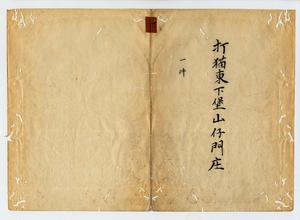 打猫東下堡山仔門庄
一冊